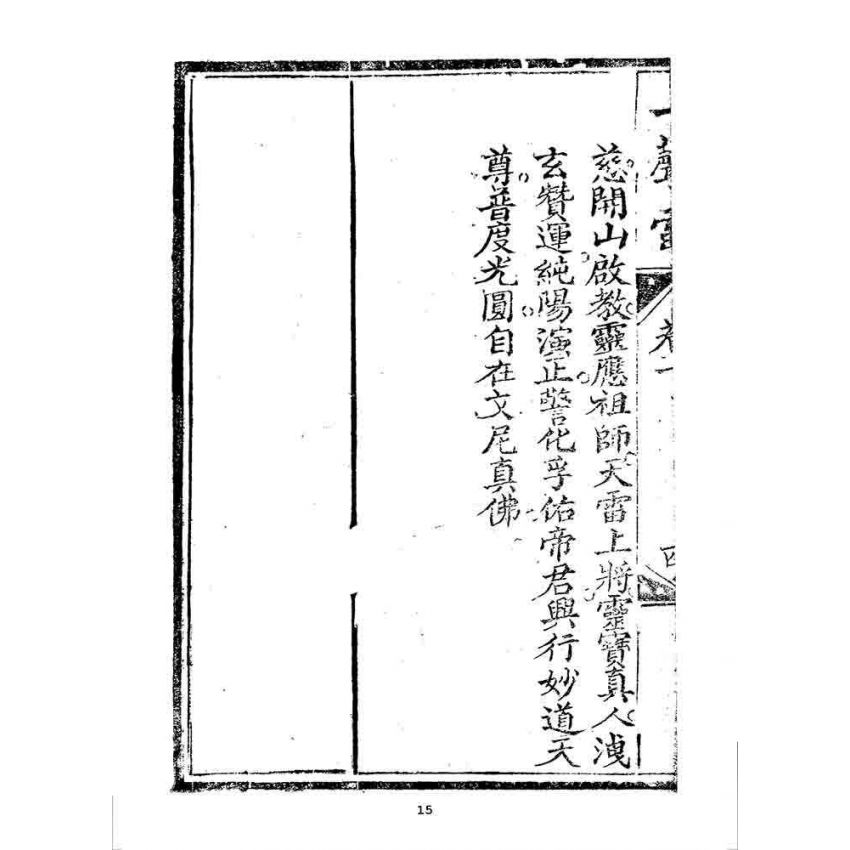 一聲雷
卷一
四
慈開山啟教靈應祖師天雷上將靈寶真人洩
玄贊運純陽演正警化孚佑帝君興行妙道天
尊普度光圓自在文尼真佛
15